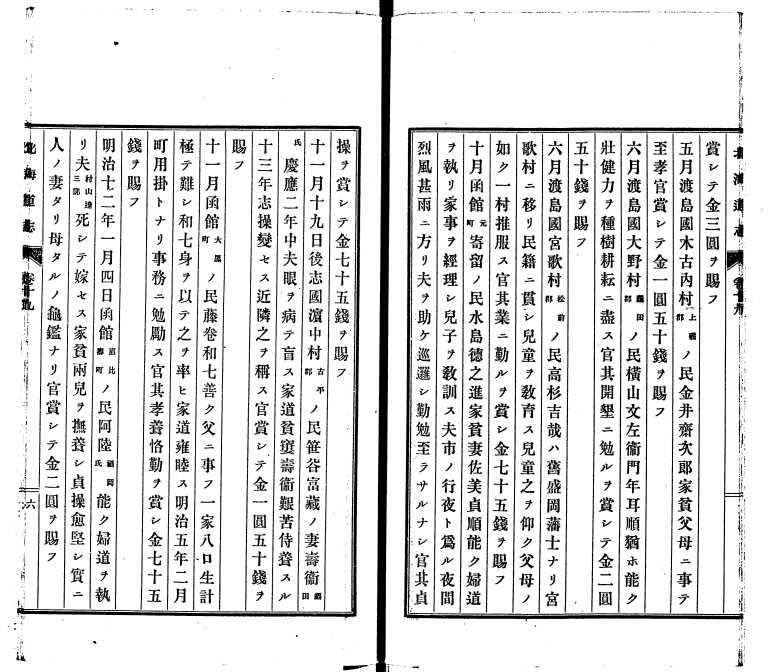 賞シテ金三圓ヲ賜フ
五月渡島國木古内村上磯郡ノ民金井齋次郎家貧父母ニ事テ
至孝官賞シテ金一圓五十錢ヲ賜フ
六月渡島國大野村龜田郡ノ民横山文左衞門年耳順猶ホ能ク
壯健力ヲ種樹耕耘ニ盡ス官其開墾ニ勉ルヲ賞シテ金二圓
五十錢ヲ賜フ
六月渡島國宮歌村松前郡ノ民高杉吉哉ハ舊盛岡藩士ナリ宮
歌村ニ移リ民籍ニ貫シ兒童ヲ敎育ス兒童之ヲ仰ク父母ノ
如ク一村推服ス官其業ニ勤ルヲ賞シ金七十五錢ヲ賜フ
十月函館元町寄留ノ民水島德之進家貧妻佐美貞順能ク婦道
ヲ執リ家事ヲ經理シ兒子ヲ敎訓ス夫市ノ行夜ト爲ル夜間
烈風甚雨ニ方リ夫ヲ助ケ巡邏シ勤勉至ラサルナシ官其貞
北海道志
卷十九
操ヲ賞シテ金七十五錢ヲ賜フ
十一月十九日後志國濵中村古平郡ノ民笹谷富藏ノ妻壽衞田
氏慶應二年中夫眼ヲ病テ盲ス家道貧窶壽衞艱苦侍養スル
十三年志操變セス近隣之ヲ稱ス官賞シテ金一圓五十錢ヲ
賜フ
十一月函館大黑町ノ民藤卷和七善ク父ニ事フ一家八口生計
極テ難シ和七身ヲ以テ之ヲ率ヒ家道雍睦ス明治五年二月
町用掛トナリ事務ニ勉勵ス官其孝養恪勤ヲ賞シ金七十五
錢ヲ賜フ
明治十二年一月四日函館壽町ノ民阿陸福岡氏能ク婦道ヲ執
リ夫村山三郎死シテ嫁セス家貧兩兒ヲ撫養シ貞操愈堅シ實ニ
人ノ妻タリ母タルノ龜鑑ナリ官賞シテ金二圓ヲ賜フ
北海道志
卷十九
六